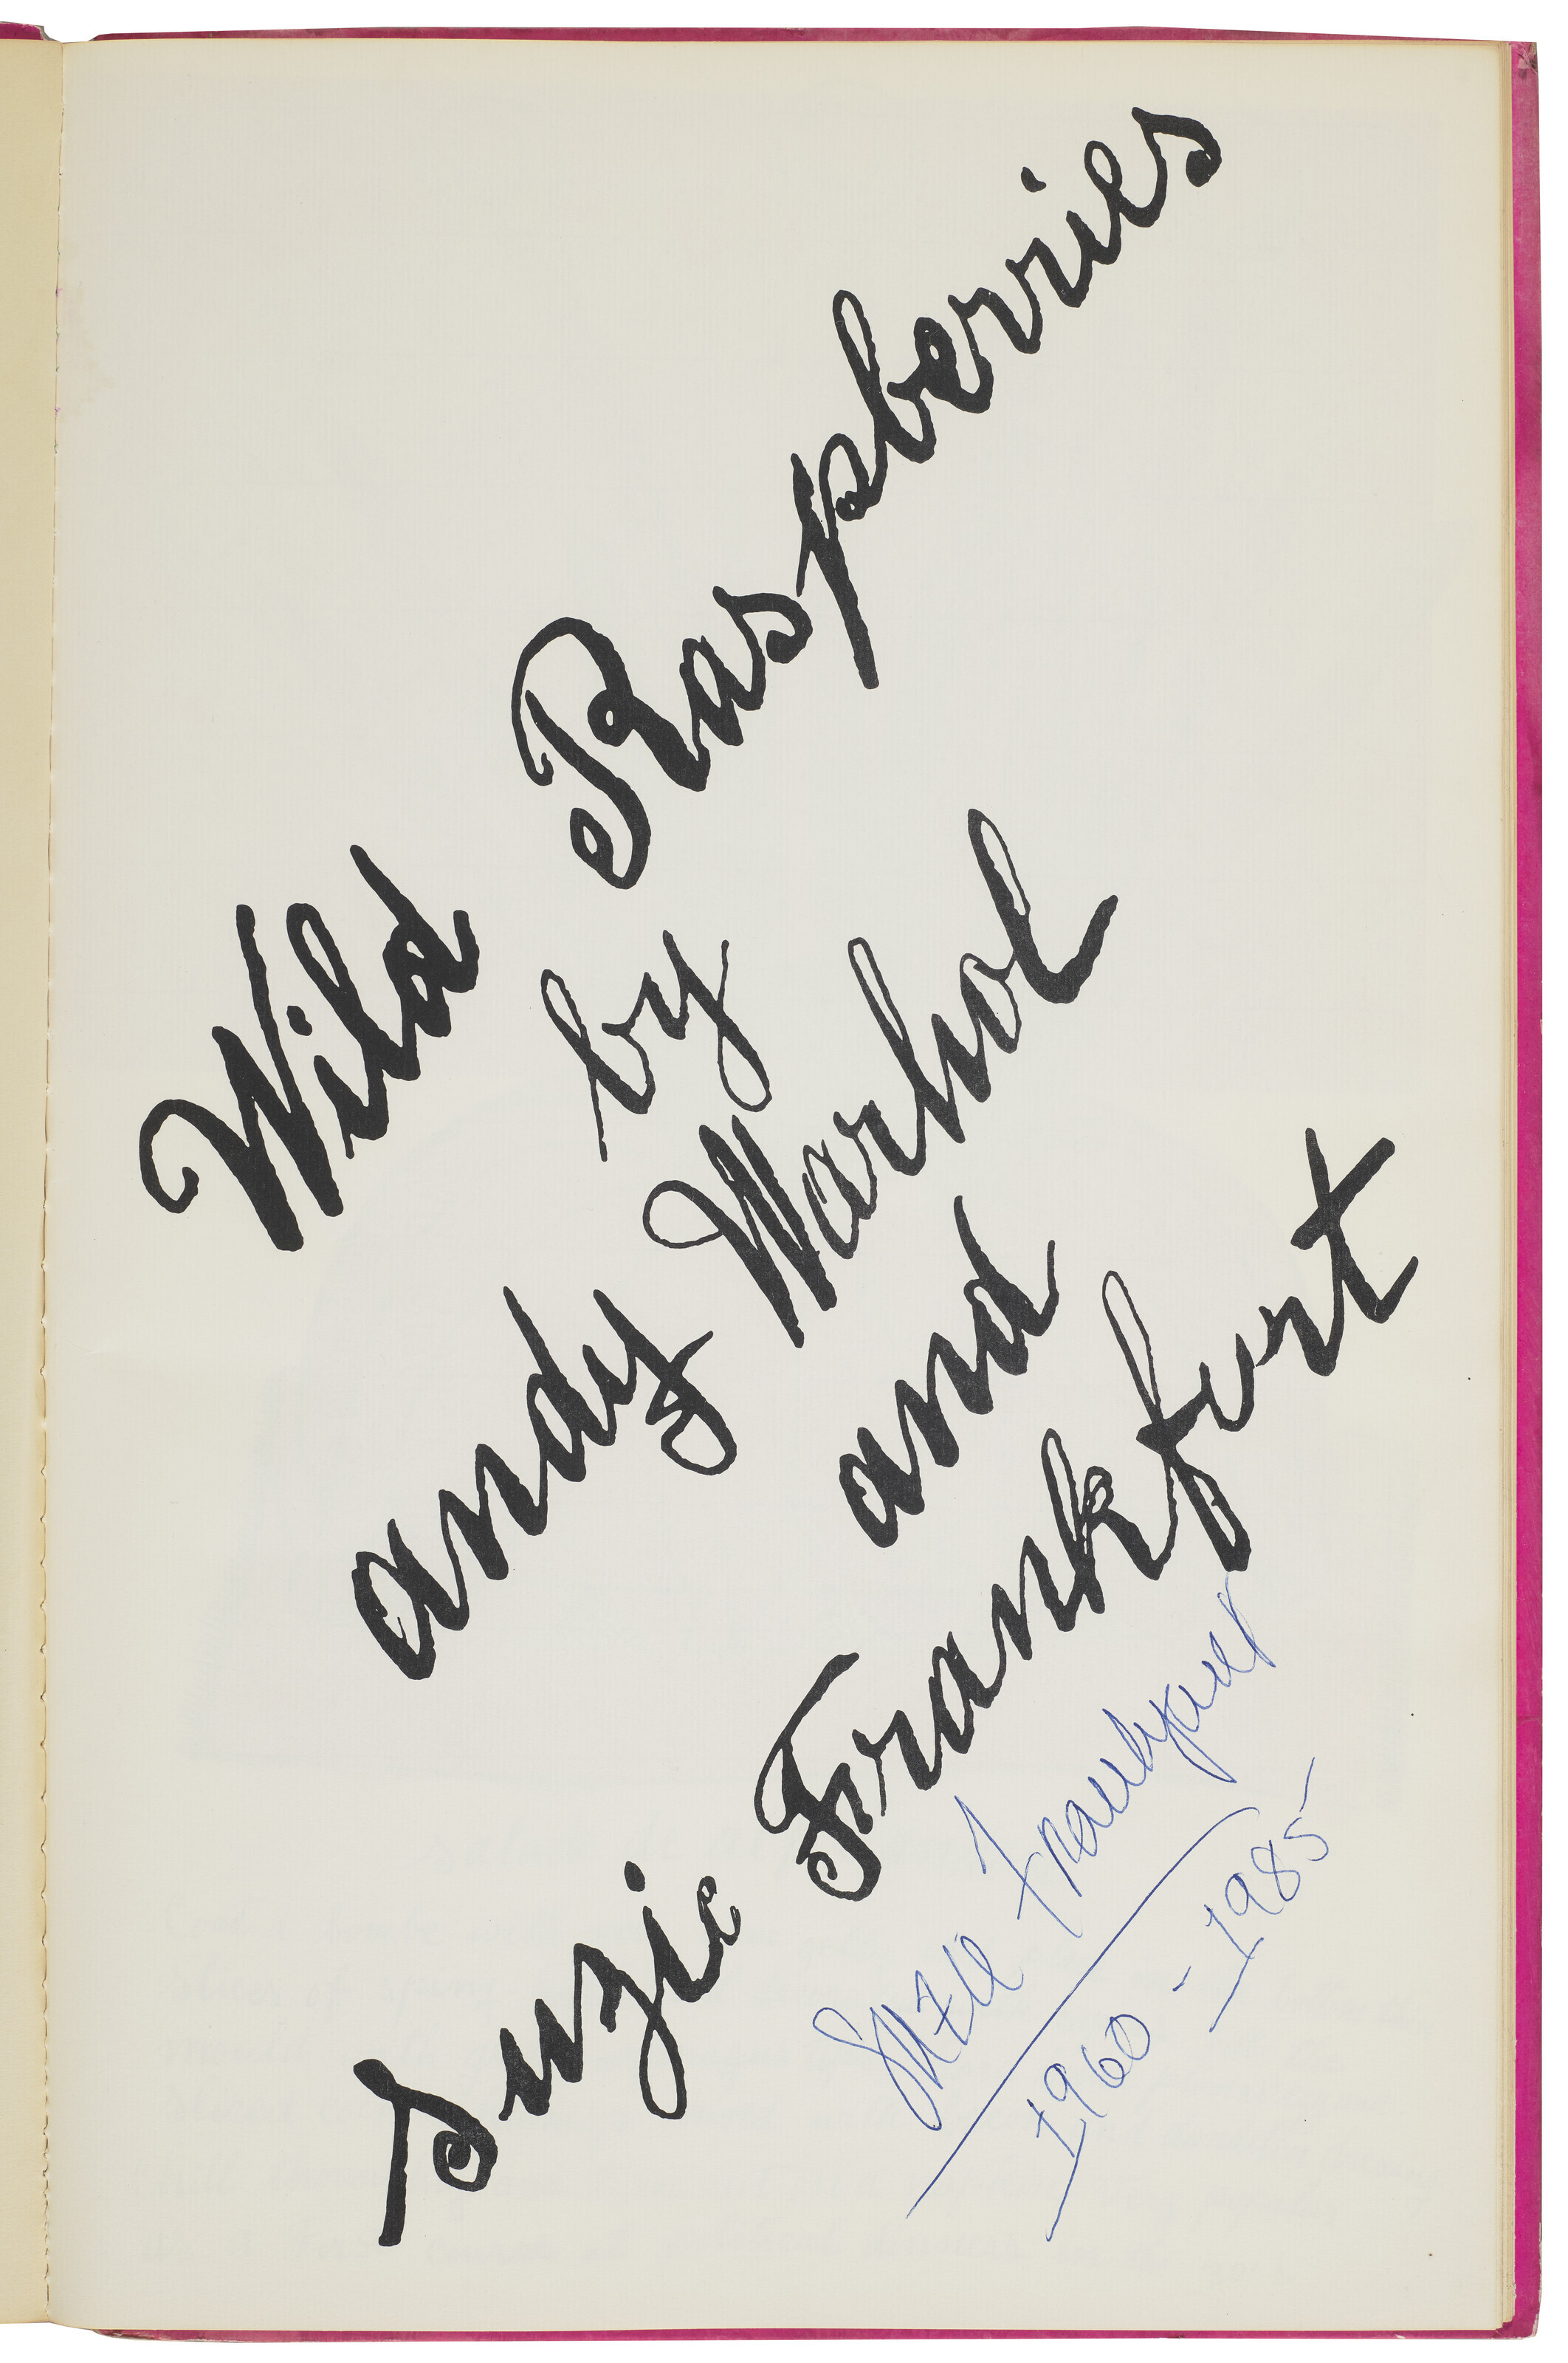 Wild Raspberries
by
andy Warhol
and
Suzie Frankfurt
Suzie Frankfurt
1960 - 1985